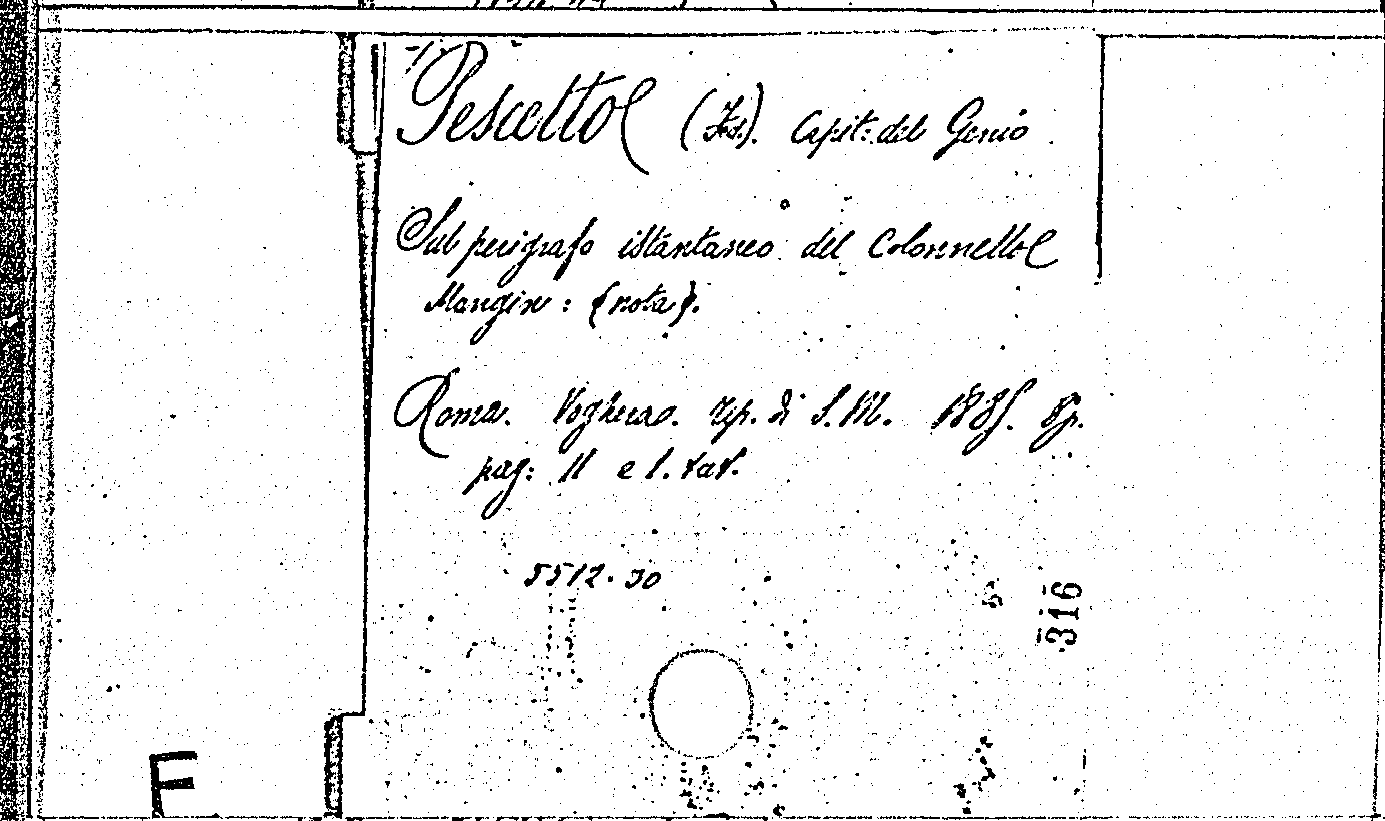 Pescetto (Fed.). Capit: del Genio
Sul perigrafo istantaneo del Colonnello
Mangin: (nota).
Roma. Voghera. Tip. di S. M. 1885. 8º.
pag: 11 e 1. tav.
5512.30
316
F